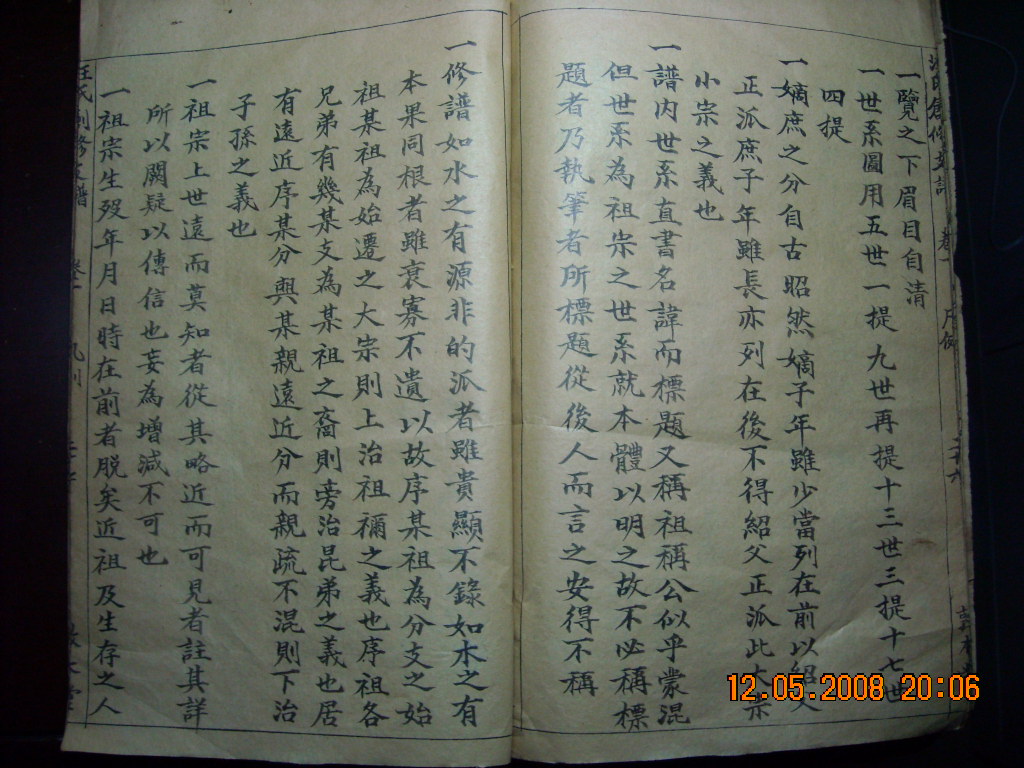 一覽之下眉目自清
一世系圖用五世一提九世再提十三世三提十七世
四提
一嫡庶之分自古昭然嫡子年雖少當列在前以紹父
正派庶子年雖長亦列在後不得紹父正派此大宗
小宗之義也
一譜內世系直書名諱而標題又稱祖稱公似乎蒙混
但世系為祖宗之世系就本體以明之故不必稱標
題者乃執筆者所標題從後人而言之安得不稱
一修譜如水之有源非的派者雖貴顯不錄如木之有
本果同根者雖衰寡不遺以故序某祖為分支之始
祖某祖為始遷之大宗則上治祖禰之義也序祖各
兄弟有幾某支為某祖之裔則旁治昆弟之義也居
有遠近序某分與某親遠近分而親疏不混則下治
子孫之義也
一祖宗上世遠而莫知者從其略近而可見者註其詳
所以闕疑以傳信也妄為增減不可也
一祖宗生歿年月日時在前者脫矣近祖及生存之人
汪氏創修支譜
12.05.2008 20:06